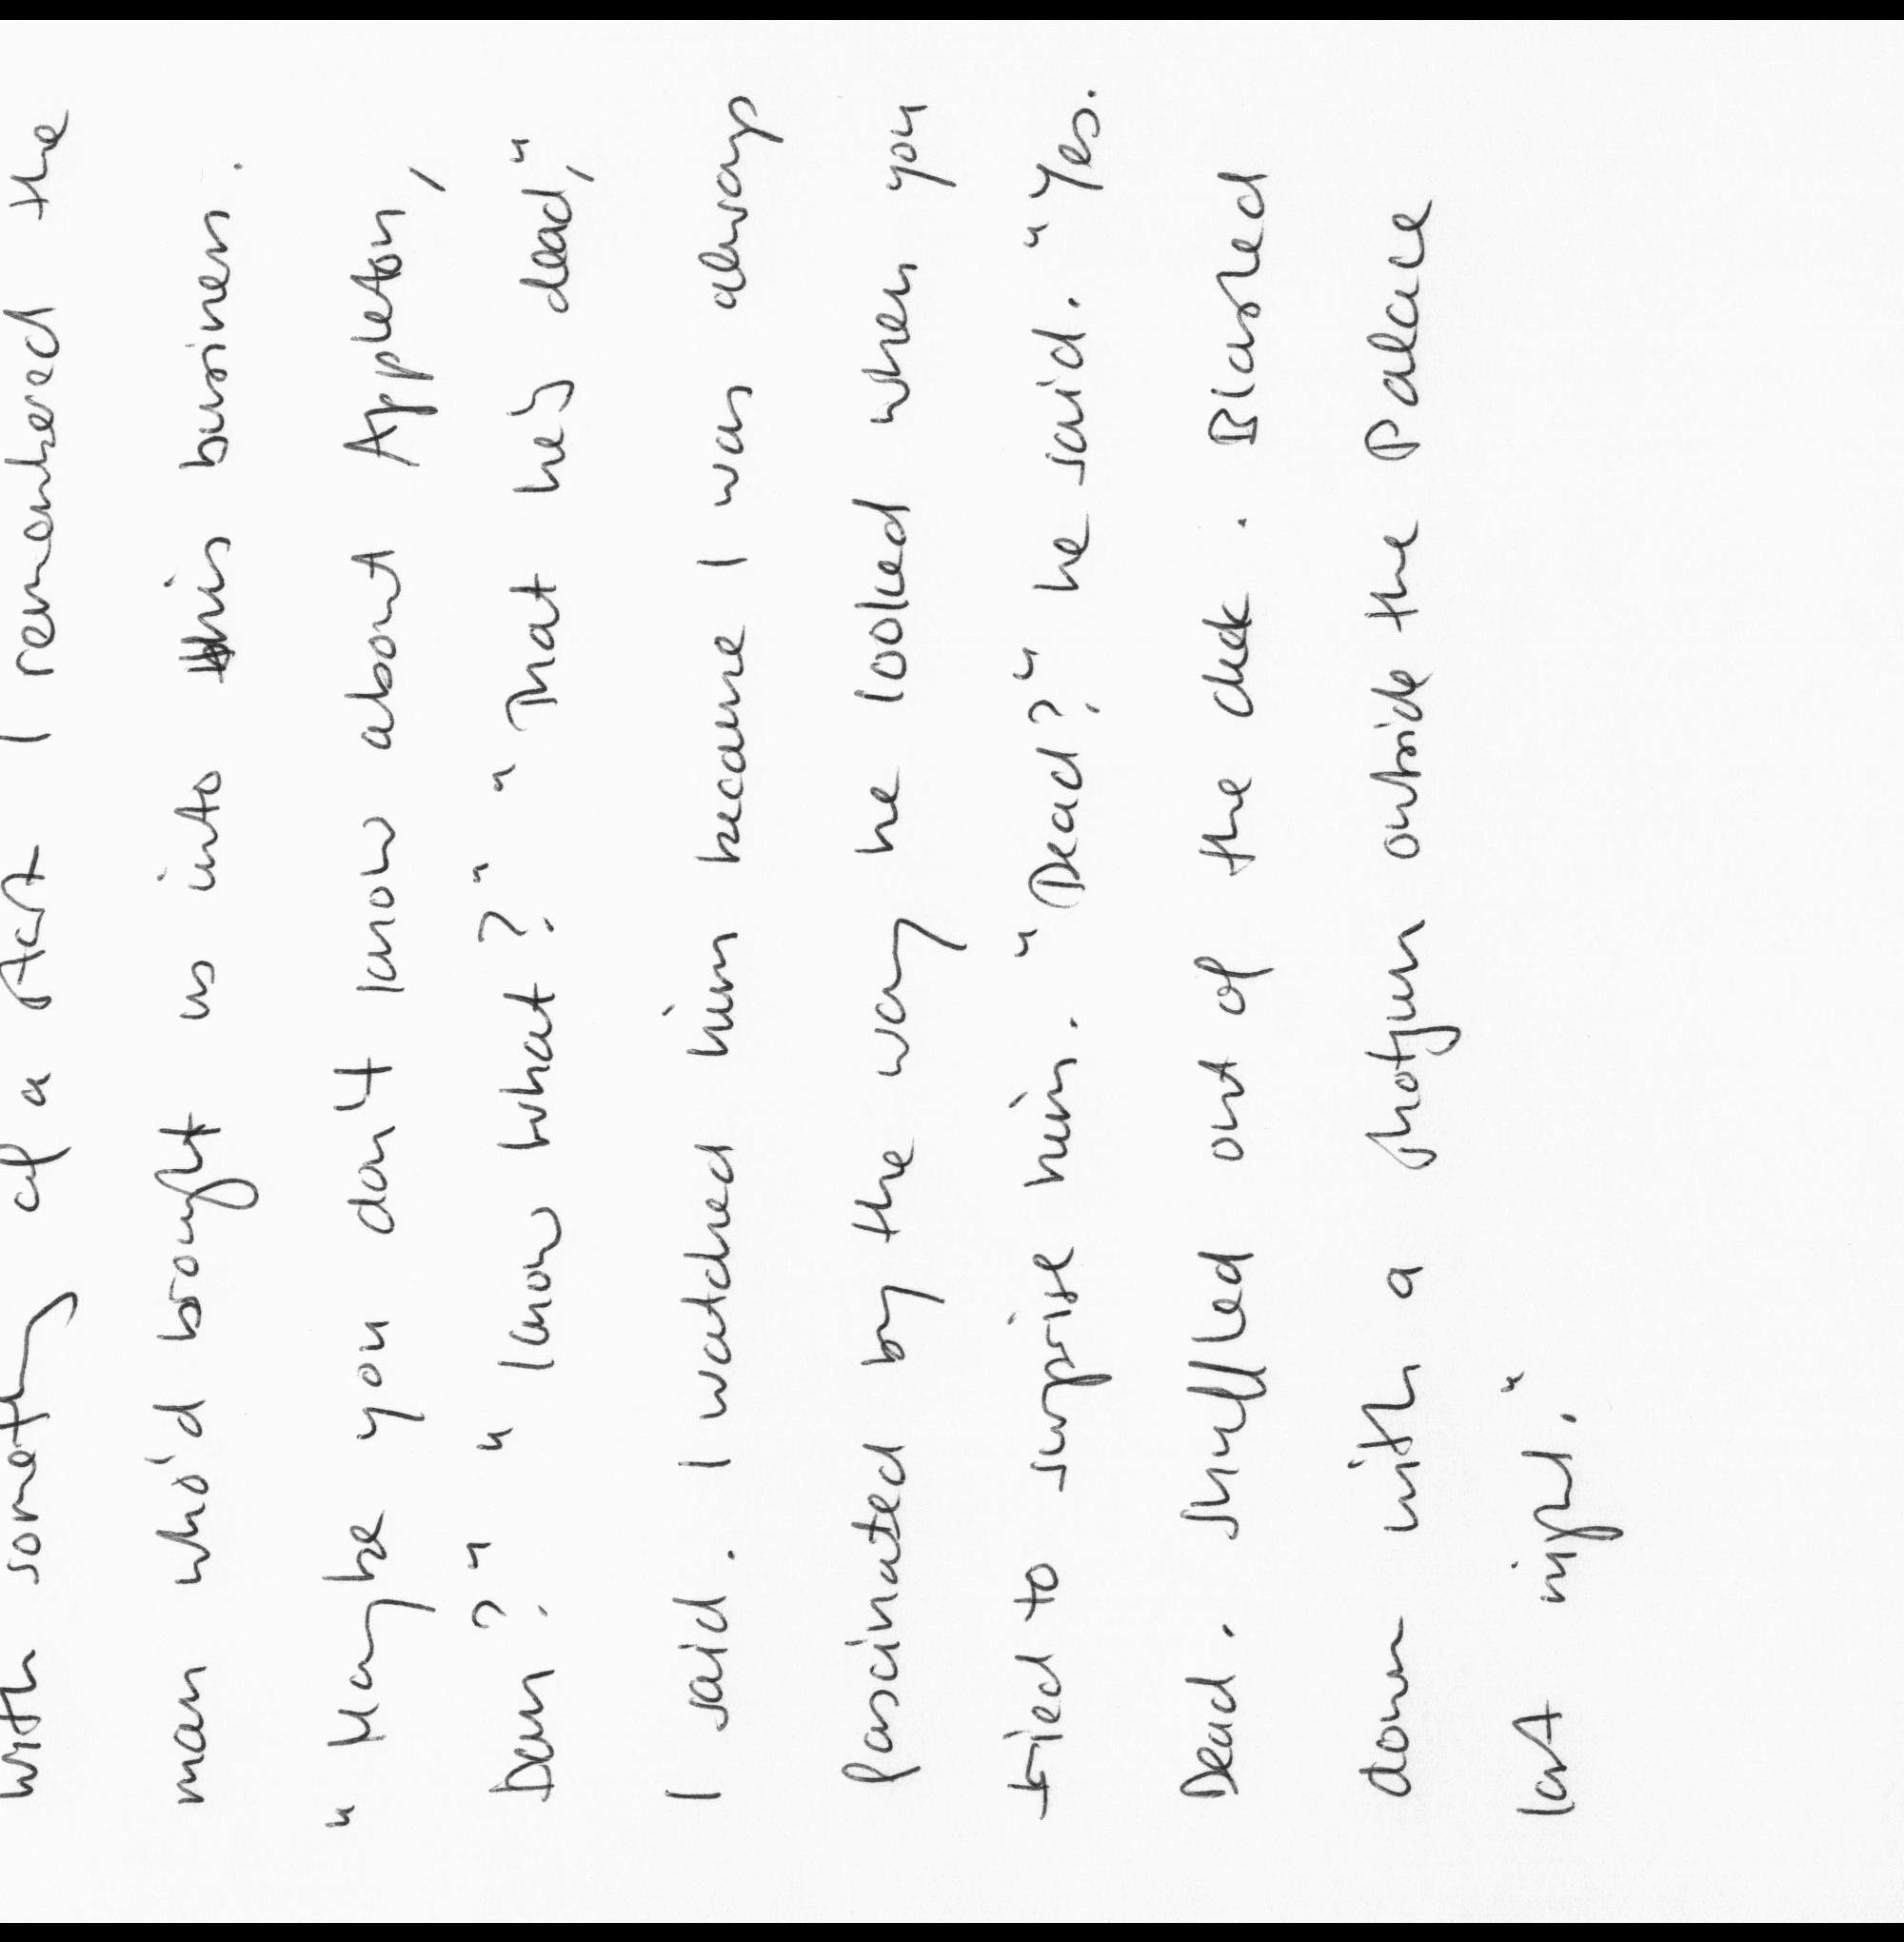 with something of a start I remembered the
man who'd brought us into this business.
"Maybe you don't know about Appleton,
Dan?" "Know what?" "That he's dead,"
I said. I watched him because I was always
fascinated by the way he looked when you
tried to surprise him. "Dead?" he said. "Yes.
Dead. Shuffled out of the deck. Blasted
down with a shotgun outside the Palace
last night."